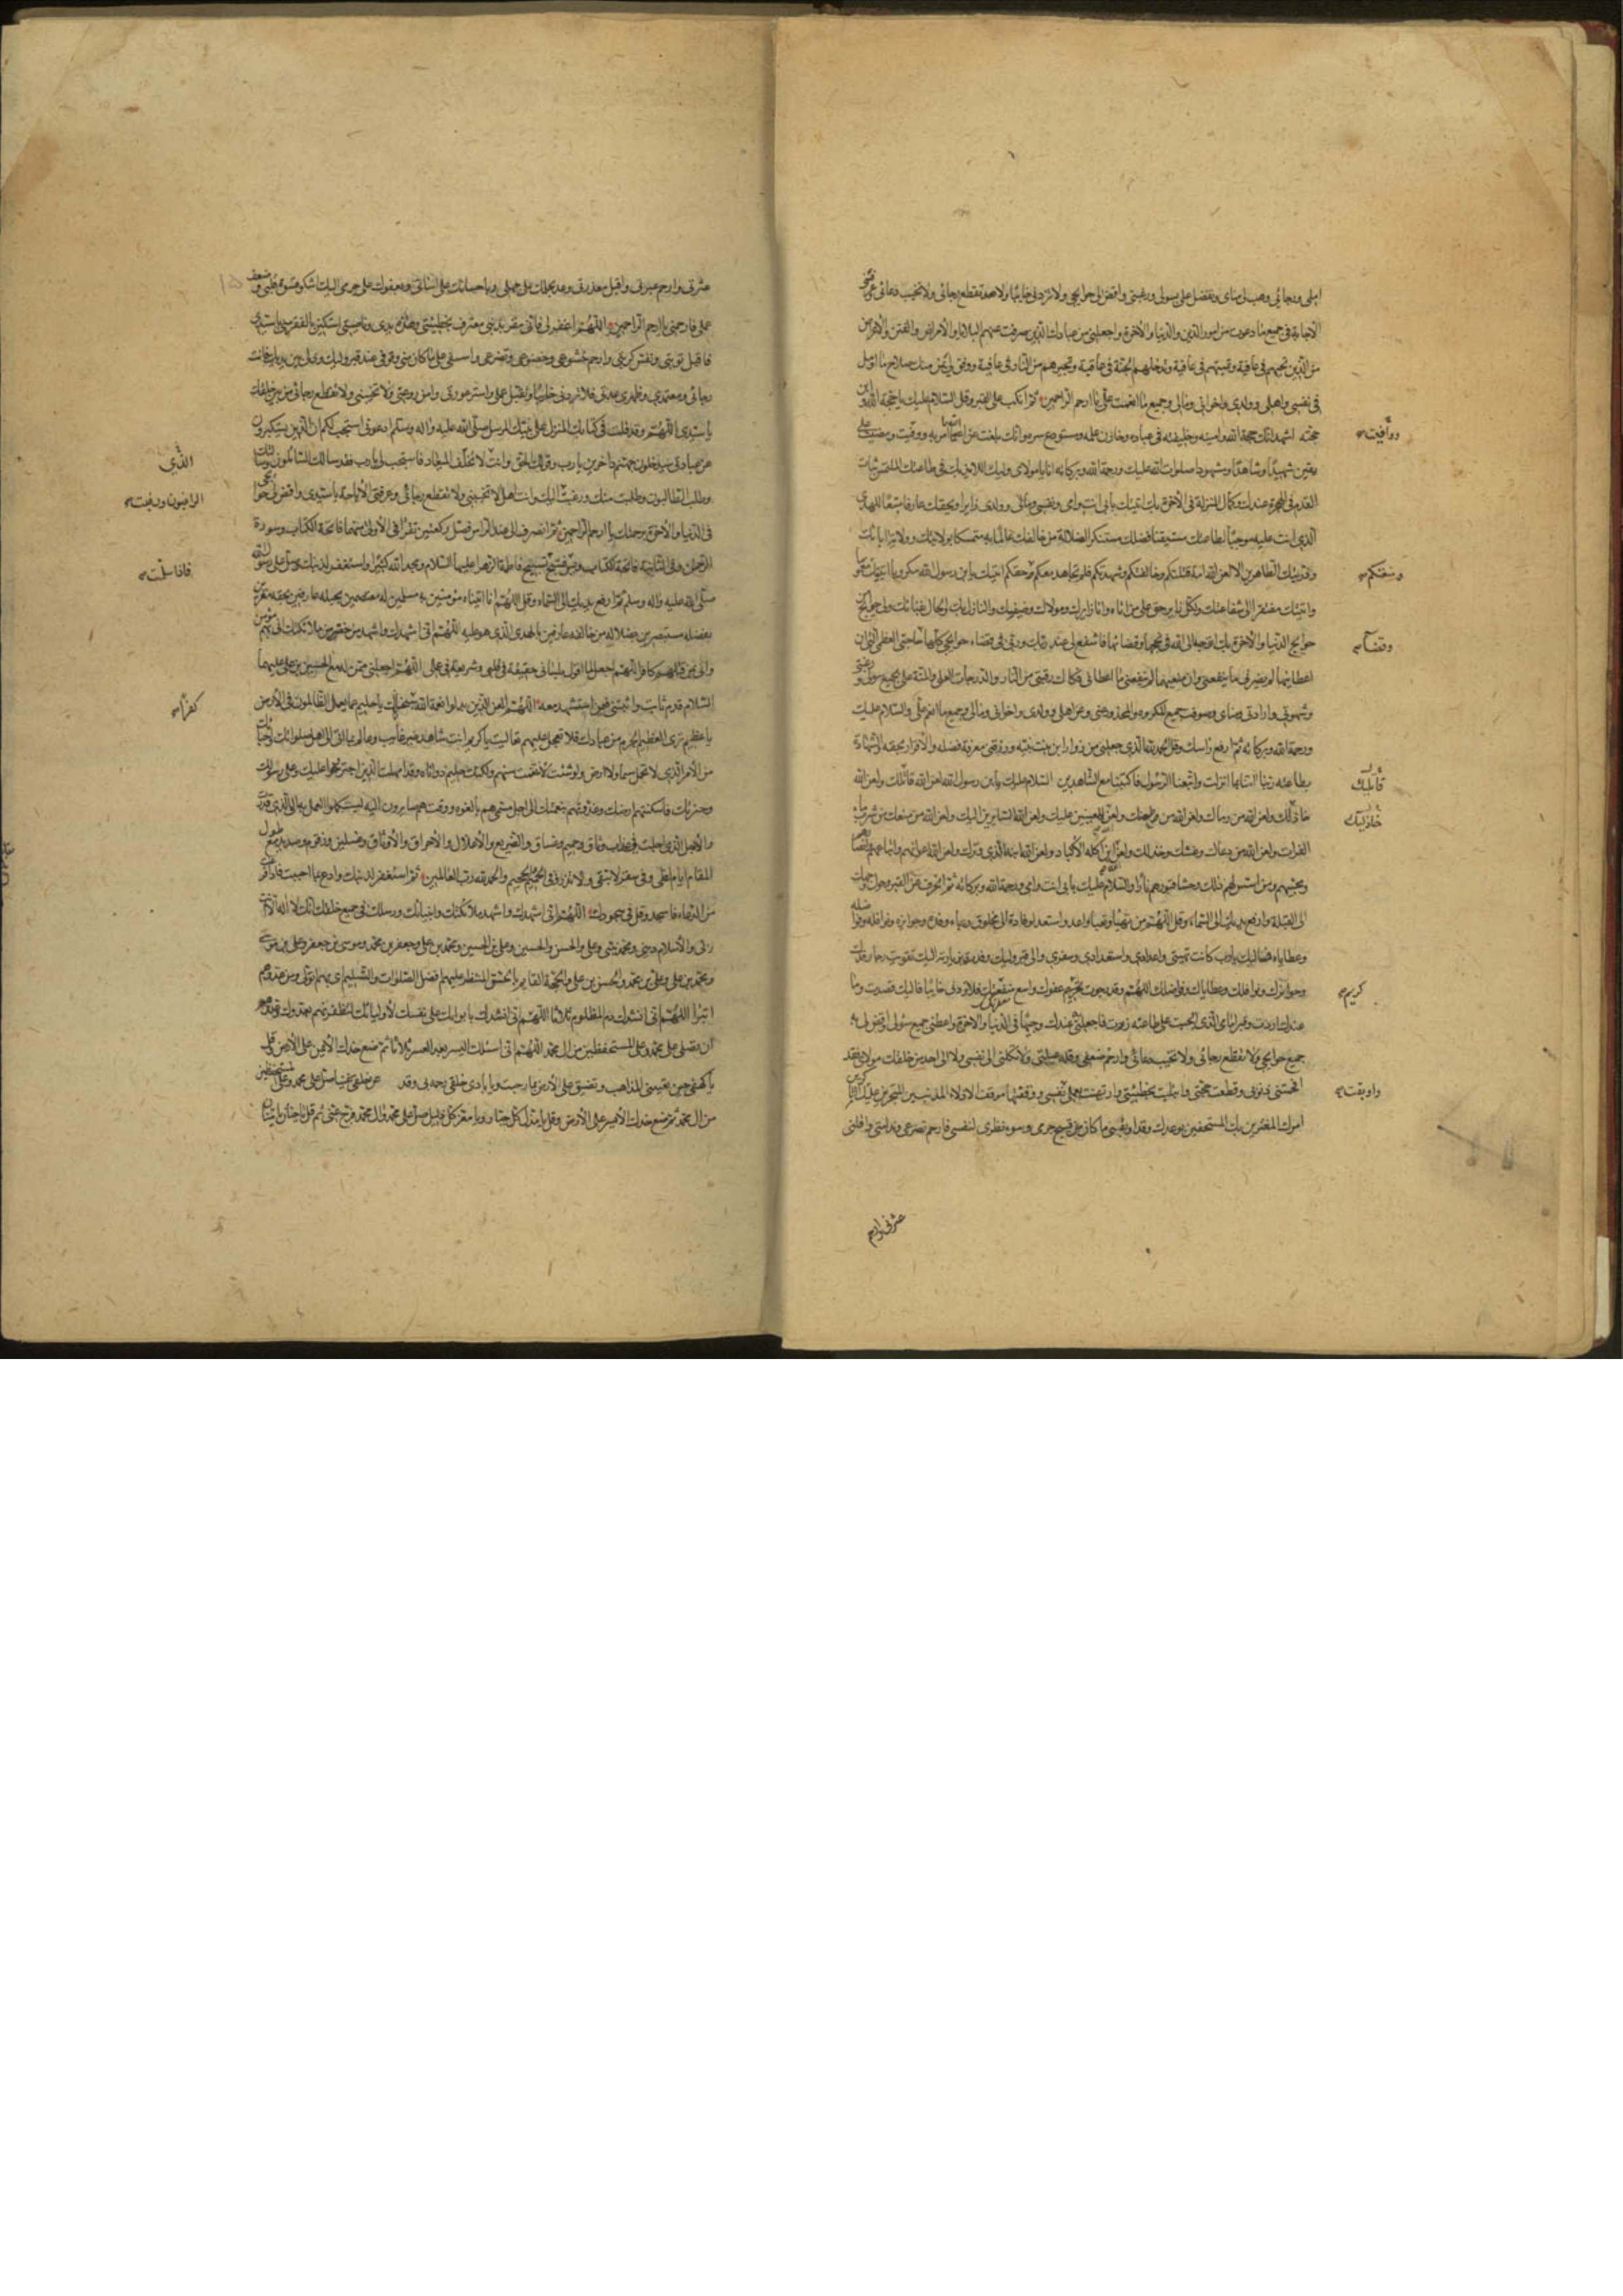 املی ورجائی وهب لی منای وتفضل علی بسولی ورغبتی واقض لی حوایجی ولا تردنی خائبا ولا تقطع رجائی ولا تخیب دعائی وعرفنی
الاجابة فی جمیع ما دعوت من امور الدین والدنیا والآخرة واجعلنی من عبادک الذین صرفت عنهم البلایا والامراض والفتن والاعراض
من الذین تحییهم فی عافیة وتمیتهم فی عافیة وتدخلهم الجنة فی عافیة وتجیرهم من النار فی عافیة ووفق لی بمن منک صلاح ما اؤمل
فی نفسی واهلی وولدی واخوانی ومالی وجمیع ما انعمت علی یا ارحم الراحمین ثم انکب علی القبر وقل السلام علیک یا حجة الله وابن
حجته اشهد انک حجة الله وامینه وخلیفته فی عباده وخازن علمه ومستودع سره وانک بلغت عن الله ما امرت به ووفیت ومضیت علی
ووافیت
یقین شهیدا وشاهدا ومشهودا صلوات الله علیک ورحمة الله وبرکاته انا یا مولای ولیک اللائذ بک فی طاعتک التمس ثبات
القدم فی الهجرة عندک وکمال المنزلة فی الآخرة بک اتیتک بابی انت وامی ونفسی ومالی وولدی زایرا وبحقک عارفا متبعا للهدی
الذی انت علیه موجبا لطاعتک مستیقنا فضلک مستنکرا لضلالة من خالفک عالما به متمسکا بولایتک وولایة آبائک
وذریتک الطاهرین الا لعن الله امة قتلتکم وخالفتکم وشهدتکم فلم تجاهد معکم وغصبتکم حقکم اتیتک یا ابن رسول الله مکروبا
ومنعتکم
واتیتک مفتقرا الی شفاعتک ولکل زایر حق علی من اتاه وانا زایرک ومولاک وضیفک والنازل بک
حوایج الدنیا والآخرة بک اتوجه الی الله فی نجحها وقضائها فاشفع لی عند ربک وربی فی قضاء حوایجی کلها حاجتی العظمی التی ان
وقضاء
اعطانیها لم یضرنی ما منعنی وان منعنیها لم ینفعنی ما اعطانی فکاک رقبتی من النار والدرجات العلی والمنة علی بجمیع سؤلی ورغبتی
وشهوتی وارادتی ومنای وصرف جمیع المکروه والمحذور عنی وعن اهلی وولدی واخوانی ومالی وجمیع ما انعم علی والسلام علیک
ورحمة الله وبرکاته ثم ارفع رأسک وقل الحمد لله الذی جعلنی من زوار ابن بنت نبیه ورزقنی معرفة فضله والاقرار بحقه والشهادة
بطاعته ربنا آمنا بما انزلت واتبعنا الرسول فاکتبنا مع الشاهدین السلام علیک یا بن رسول الله لعن الله قاتلک ولعن الله
قاتلیک
خاذلک ولعن الله من رماک ولعن الله من طعنک ولعن الله المعینین علیک ولعن الله السایرین الیک ولعن الله من منعک من شرب ماء
خاذلیک
الفرات ولعن الله من دعاک وغشک وخذلک ولعن الله ابن آکلة الاکباد ولعن الله ابنه الذی وترک ولعن الله اعوانهم واتباعهم وانصارهم
ومحبیهم ومن اسس لهم ذلک وحشا قبورهم نارا والسلام علیک بابی انت وامی ورحمة الله وبرکاته ثم انحرف عن القبر وحول وجهک
الی القبلة وارفع یدیک الی السماء وقل اللهم من تهیأ وتعبأ واعد واستعد لوفادة الی مخلوق رجاء رفده وجوایزه ونوافله وفواضله
وعطایاه فالیک یا رب کانت تهیئتی واعدادی واستعدادی وسفری والی قبر ولیک وفدت وبزیارته الیک تقربت رجاء رفدک
وجوایزک ونوافلک وعطایاک وفواضلک اللهم وقد رجوت کریم عفوک وواسع مغفرتک فلا تردنی خائبا فالیک قصدت وما
کریم
عندک اردت وقبر امامی الذی اوجبت علی طاعته زرت فاجعلنی به عندک وجیها فی الدنیا والآخرة واعطنی جمیع سؤلی واقض لی به
جمیع حوایجی ولا تقطع رجائی ولا تخیب دعائی وارحم ضعفی وقلة حیلتی ولا تکلنی الی نفسی ولا الی احد من خلقک مولای فقد
افحمتنی ذنوبی وقطعت حجتی وابتلیت بخطیئتی وارتهنت بعملی نفسی ووقفتها موقف الاذلاء المذنبین المتجرین علیک التارکین
واوبقت
امرک المغترین بک المستخفین بوعدک وقد اوبقنی ما کان من قبیح جرمی وسوء نظری لنفسی فارحم تضرعی وندامتی واقلنی
عثرتی وارحم
عثرتی وارحم عبرتی واقبل معذرتی وعد بحلمک علی جهلی وباحسانک علی اسائتی وبعفوک علی جرمی الیک اشکو قسوة قلبی وضعف
عملی فارحمنی یا ارحم الراحمین اللهم اغفر لی فانی مقر بذنبی معترف بخطیئتی وهذه یدی وناصیتی استکین بالفقر منی یا سیدی
فاقبل توبتی ونفس کربتی وارحم خشوعی وخضوعی وتضرعی واسفی علی ما کان منی ووقوفی عند قبر ولیک وذلی بین یدیک فانت
رجائی ومعتمدی وظهری وعدتی فلا تردنی خائبا وتقبل عملی واستر عورتی وآمن روعتی ولا تخیبنی ولا تقطع رجائی من بین خلقک
یا سیدی اللهم وقد قلت فی کتابک المنزل علی نبیک المرسل صلی الله علیه وآله وسلم ادعونی استجب لکم ان الذین یستکبرون
عن عبادتی سیدخلون جهنم داخرین یا رب وقولک الحق وانت الذی لا تخلف المیعاد فاستجب لی یا رب فقد سألک السائلون وسألتک
الذی
وطلب الطالبون وطلبت منک ورغب الراغبون ورغبت الیک وانت اهل الا تخیبنی ولا تقطع رجائی وعرفنی الاجابة یا سیدی واقض لی حوائجی
الراغبون ورغبت
فی الدنیا والآخرة برحمتک یا ارحم الراحمین ثم انصرف الی عند الراس فصل رکعتین تقرأ فی الاولی منهما فاتحة الکتاب وسورة
الرحمن وفی الثانیة فاتحة الکتاب ویس فسبح تسبیح فاطمة الزهراء علیها السلام ومجد الله کثیرا واستغفر لذنبک وصل علی رسول الله
فاذا سلمت
صلی الله علیه وآله وسلم ثم ارفع یدیک الی السماء وقل اللهم انا اتیناه مؤمنین به مسلمین له معتصمین بحبله عارفین بحقه مقرین
بفضله مستبصرین بضلالة من خالفه عارفین بالهدی الذی هو علیه اللهم انی اشهدک واشهد من حضر من ملائکتک انی بهم مؤمن
وانی بمن قتلهم کافر اللهم اجعل لما اقول بلسانی حقیقة فی قلبی وشریعة فی عملی اللهم اجعلنی ممن له مع الحسین بن علی علیهما
السلام قدم ثابت واثبتنی فیمن استشهد معه اللهم العن الذین بدلوا نعمة الله سبحانک یا حلیم عما یعمل الظالمون فی الارض
کفرا
یا عظیم تری العظیم من الجرم من عبادک فلا تعجل علیهم تعالیت یا کریم انت شاهد غیر غائب وعالم بما اتی الی اهل صلواتک واحبائک
من الامر الذی لا تحمل سماء ولا ارض ولو شئت لانتقمت منهم ولکنک حلیم ذو اناة وقد امهلت الذین اجترؤا علیک وعلی رسولک
وحبیبک فاسکنتهم ارضک وغذوتهم بنعمتک الی اجل مسمی هم بالغوه ووقت هم صایرون الیه لیستکملوا العمل به الی الذی قدرت
والاجل الذی اجلت فی عذاب ووثاق وحمیم وغساق والضریع والاغلال والاحراق والاوثاق وغسلین وزقوم وصدید مع طول
المقام ایام لظی وفی سقر لا تبقی ولا تذر وفی الحمیم والجحیم والحمد لله رب العالمین ثم استغفر لذنبک وادع بما احببت فاذا فرغت
من الدعاء فاسجد وقل فی سجودک اللهم انی اشهدک واشهد ملائکتک وانبیائک ورسلک وجمیع خلقک انک لا اله الا انت
ربی والاسلام دینی ومحمد نبیی وعلی والحسن والحسین وعلی بن الحسین ومحمد بن علی وجعفر بن محمد وموسی بن جعفر وعلی بن موسی
ومحمد بن علی وعلی بن محمد والحسن بن علی والحجة القائم بالحق المنتظر علیهم افضل الصلوات والتسلیم ائمتی بهم اتولی ومن عدوهم
اتبرأ اللهم انی انشدک دم المظلوم ثلاثا اللهم انی انشدک بایوائک علی نفسک لاولیائک لتظفرنهم بعدوک وعدوهم
ان تصلی علی محمد وعلی المستحفظین من آل محمد اللهم انی اسئلک الیسر بعد العسر ثلاثا ثم ضع خدک الایمن علی الارض وقل
یا کهفی حین تعیینی المذاهب وتضیق علی الارض بما رحبت ویا باری خلقی رحمة بی وقد عن خلقی غنیا صل علی محمد وعلی المستحفظین
من آل محمد ثم ضع خدک الایسر علی الارض وقل یا مذل کل جبار ویا معز کل ذلیل صل علی محمد وآل محمد وفرج عنی ثم قل یا حنان یا منان